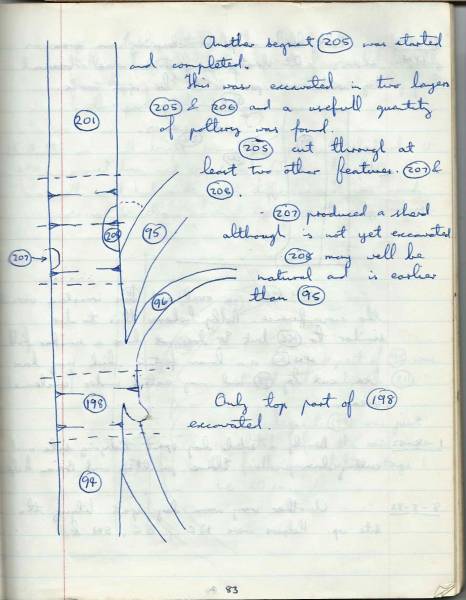 Another segment 205 was started
and completed.
This was excavated in two layers
205 & 206 and a usefull quantity
of pottery was found.
205 cut through at
least two other features. 207 &
208.
207 produced a sherd
although is not yet excavated
208 may well be
natural and is earlier
than 95
Only top part of 198
excavated.
201
208
95
207
96
198
94
83